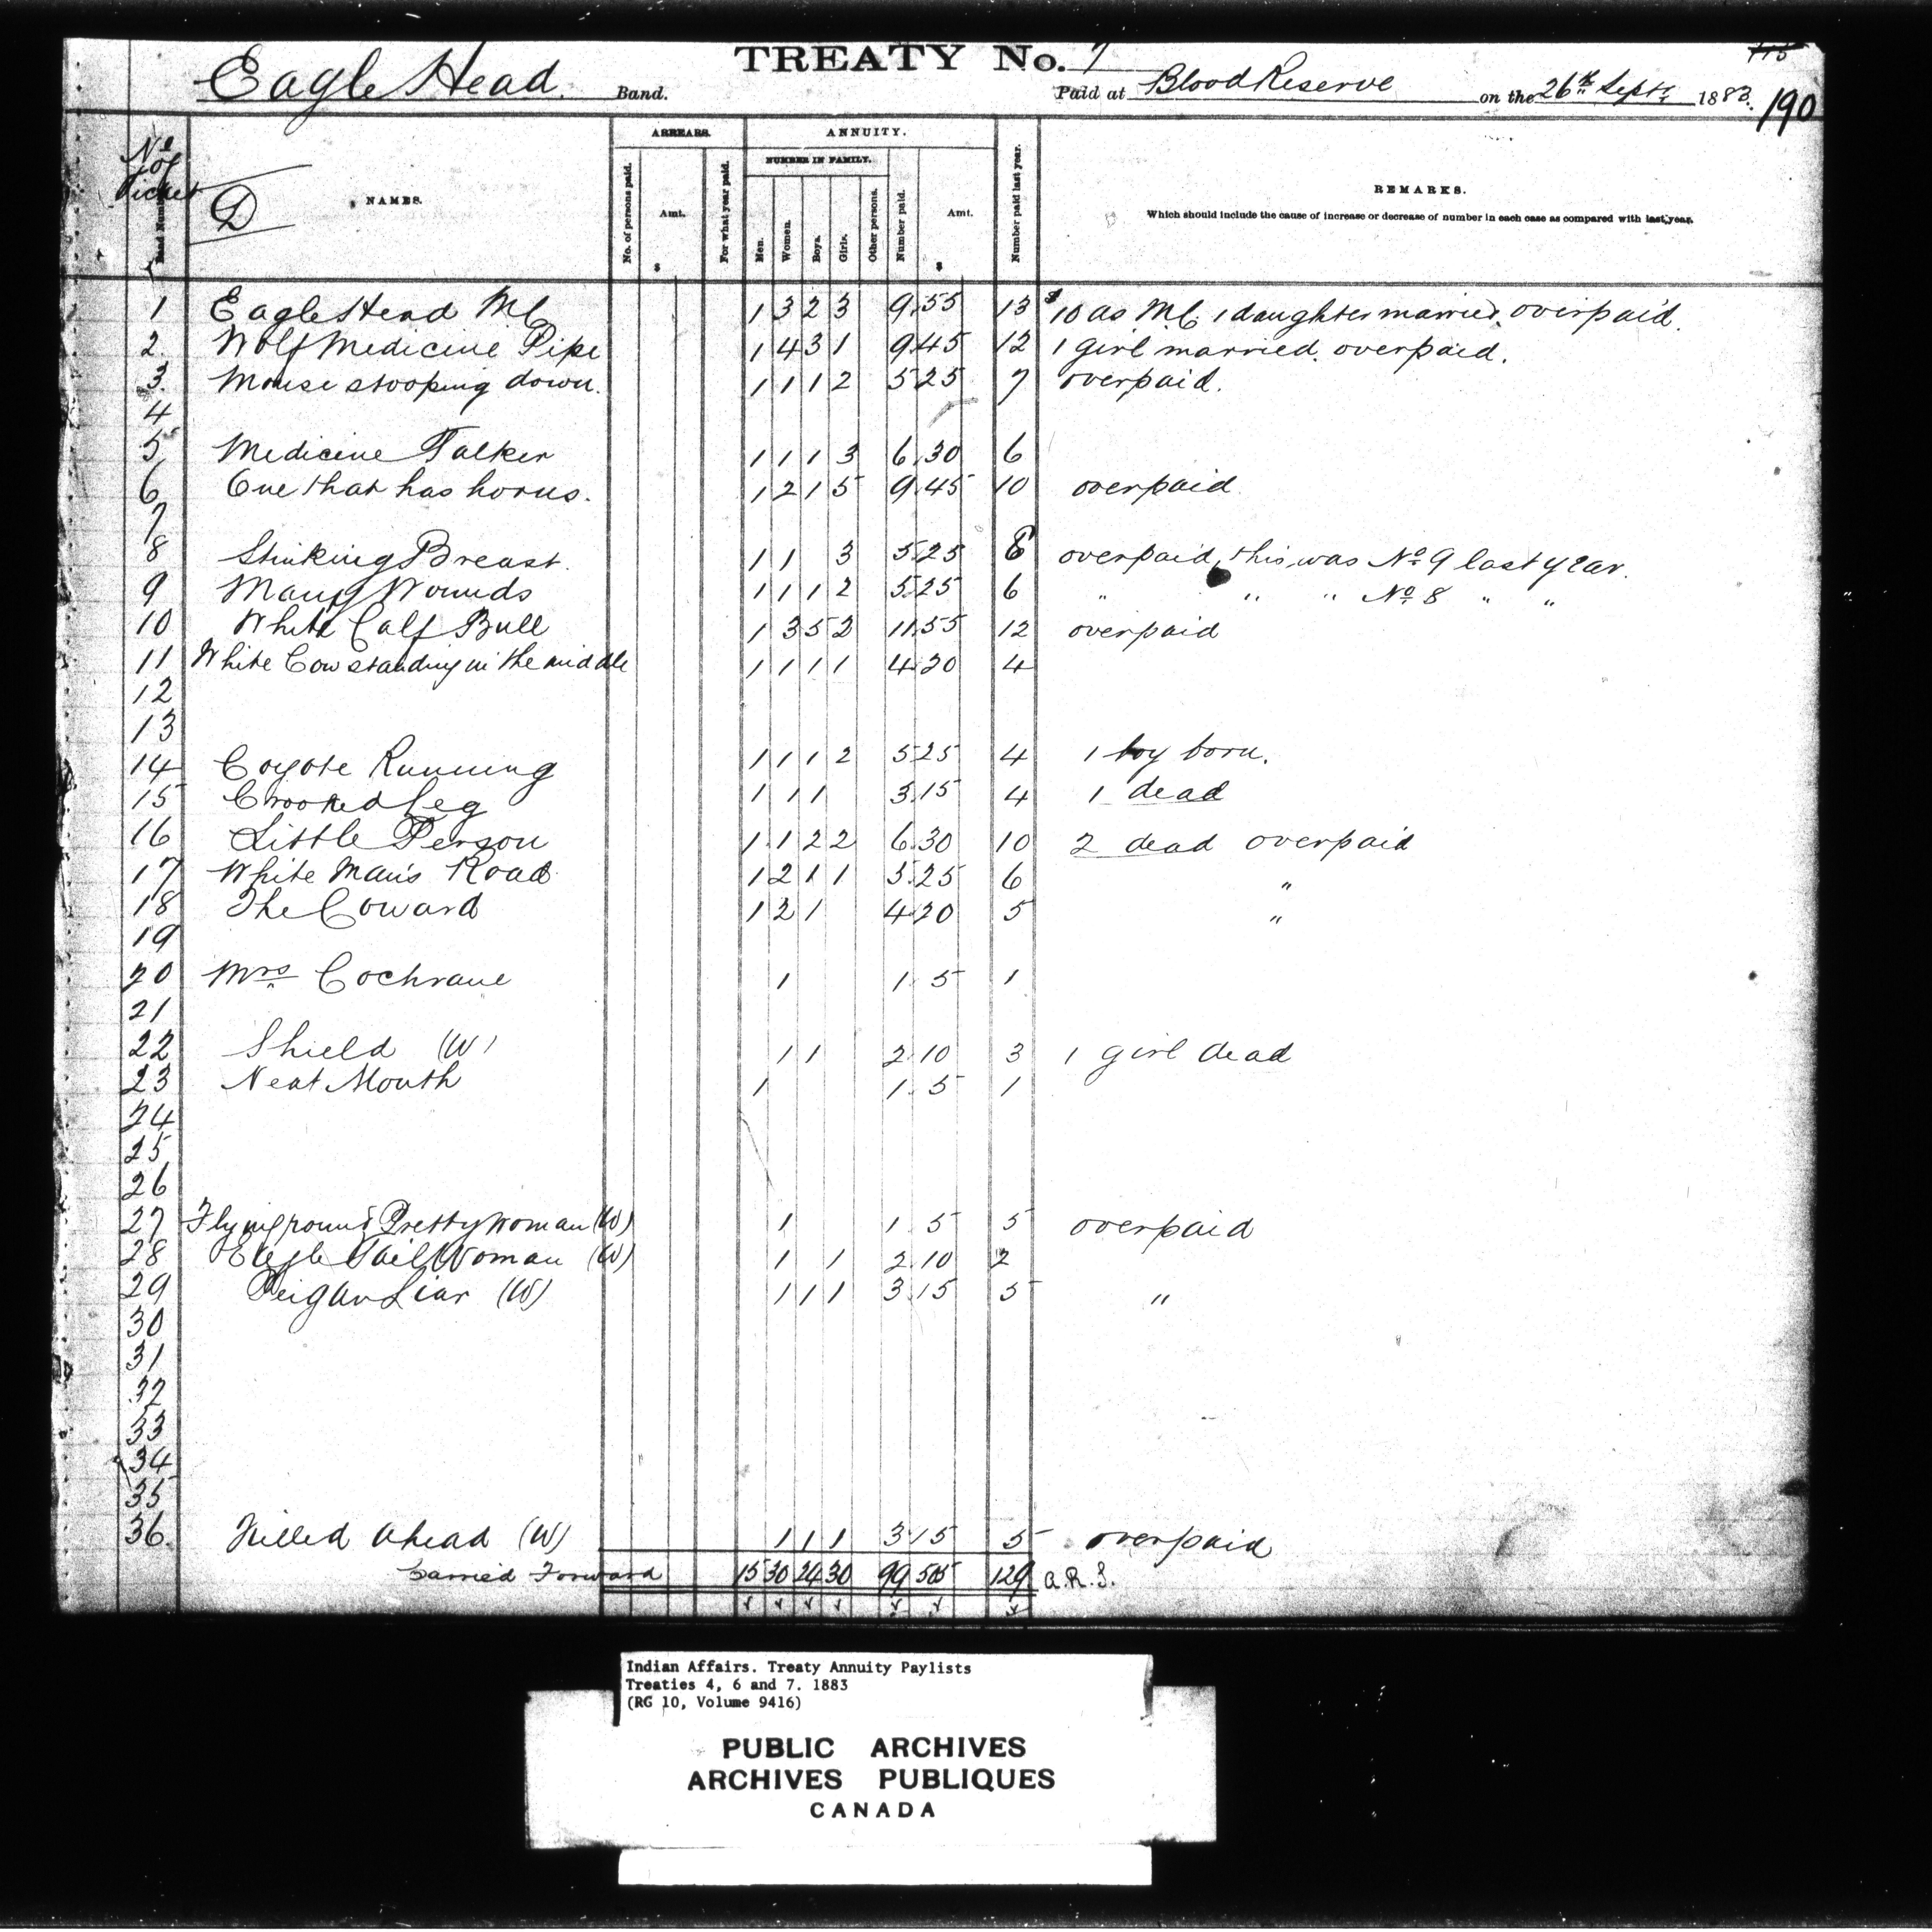 TREATY No. 7
115
Eagle Head. Band. Paid at Blood Reserve on the 26th Sept. 1883.
190
No of Ticket
Band Number
D
NAMES.
ARREARS.
No. of persons paid.
Amt.
$
For what year paid.
ANNUITY.
NUMBER IN FAMILY.
Men.
Women.
Boys.
Girls.
Other persons.
Number paid.
Amt.
$
Number paid last year.
REMARKS.
Which should include the cause of increase or decrease of number in each case as compared with last year.
1 Eagle Head M.C. 1 3 2 3 9 55 13 $10 as M.C. 1 daughter married. overpaid.
2. Wolf Medicine Pipe 1 4 3 1 9 45 12 1 girl married. overpaid.
3. Mouse stooping down. 1 1 1 2 5 25 7 overpaid.
4
5 Medicine Talker 1 1 1 3 6 30 6
6 One that has horns. 1 2 1 5 9 45 10 overpaid
7
8 Stinking Breast. 1 1 3 5 25 8 overpaid, this was No 9 last year.
9 Many Wounds 1 1 1 2 5 25 6 " " " No. 8 " "
10 White Calf Bull 1 3 5 2 11 55 12 overpaid
11 White Cow standing in the middle 1 1 1 1 4 20 4
12
13
14 Coyote Running 1 1 1 2 5 25 4 1 boy born.
15 Crooked Leg 1 1 1 3 15 4 1 dead
16 Little Person 1 1 2 2 6 30 10 2 dead overpaid
17 White Man's Road 1 2 1 1 5 25 6 "
18 The Coward 1 2 1 4 20 5 "
19
20 Mrs Cochrane 1 1 5 1
21
22 Shield (W) 1 1 2 10 3 1 girl dead
23 Neat Mouth 1 1 5 1
24
25
26
27 Flying round Pretty Woman (W) 1 1 5 5 overpaid
28 Eagle Tail Woman (W) 1 1 2 10 2
29 Peigan Liar (W) 1 1 1 3 15 5 "
30
31
32
33
34
35
36. Killed Ahead (W) 1 1 1 3 15 5 overpaid
Carried Forward 15 30 24 30 99 505 129 a.R.S.
Indian Affairs. Treaty Annuity Paylists
Treaties 4, 6 and 7. 1883
(RG 10, Volume 9416)
PUBLIC ARCHIVES
ARCHIVES PUBLIQUES
CANADA